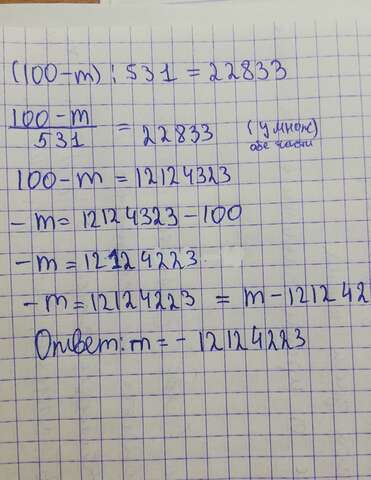 (100-m):531=22833
100-m
531
= 22833 (умнож)
обе части
100-m=12124323
-m=12124323-100
-m=12124223
-m=12124223 = m-121242
Ответ: m=-12124223